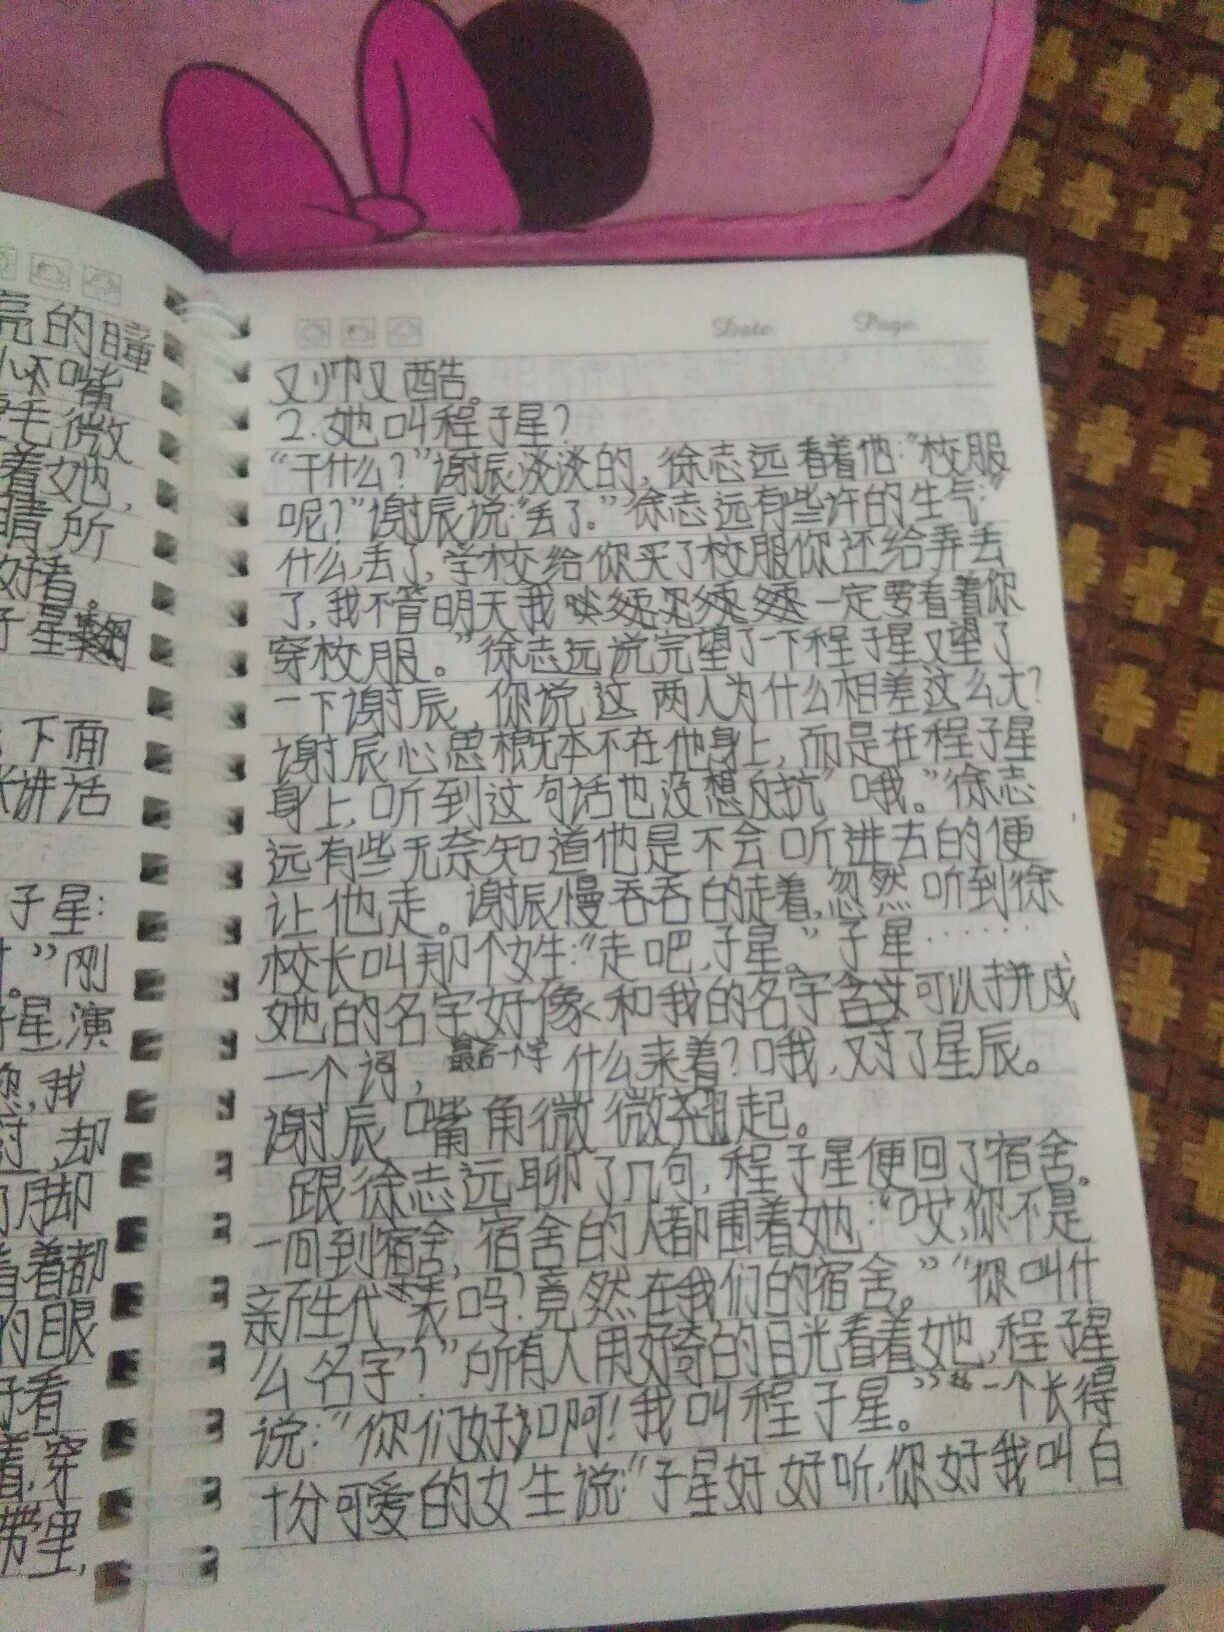 亮的瞳
小不嘴
毛,微
着她,
睛所
好看。
子星
下面
讲话
子星:
。”刚
子星,演
忽,我
讨,却
的月却
着着都
的眼
好看
着,穿
带里,
Date: Page:
又帅又酷。
2.她叫程子星?
“干什么?”谢辰淡淡的,徐志远看着他:“校服
呢?”谢辰说:“丢了。”徐志远有些许的生气:“
什么,丢了,学校给你买了校服你还给弄丢
了,我不管明天我一定要看着你
穿校服。”徐志远说完望了一下程子星又望了
一下谢辰,你说这两人为什么相差这么大?
谢辰心思根本不在他身上,而是在程子星
身上,听到这句话也没想反抗”哦。”徐志
远有些无奈知道他是不会听进去的便
让他走。谢辰慢吞吞的走着,忽然听到徐
校长叫那个女生:“走吧,子星。”子星……
她的名字好像和我的名字含义可以拼成
一个词,最后一个字什么来着?哦,对了星辰。
谢辰嘴角微微翘起。
跟徐志远聊了几句,程子星便回了宿舍。
一回到宿舍,宿舍的人都围着她:“哎,你不是
新生代表吗?竟然在我们的宿舍。”“你叫什
么名字?”所有人用好奇的目光看着她,程子星
说:“你们好啊!我叫程子星。”一个长得
十分可爱的女生说:“子星好好听,你好我叫白